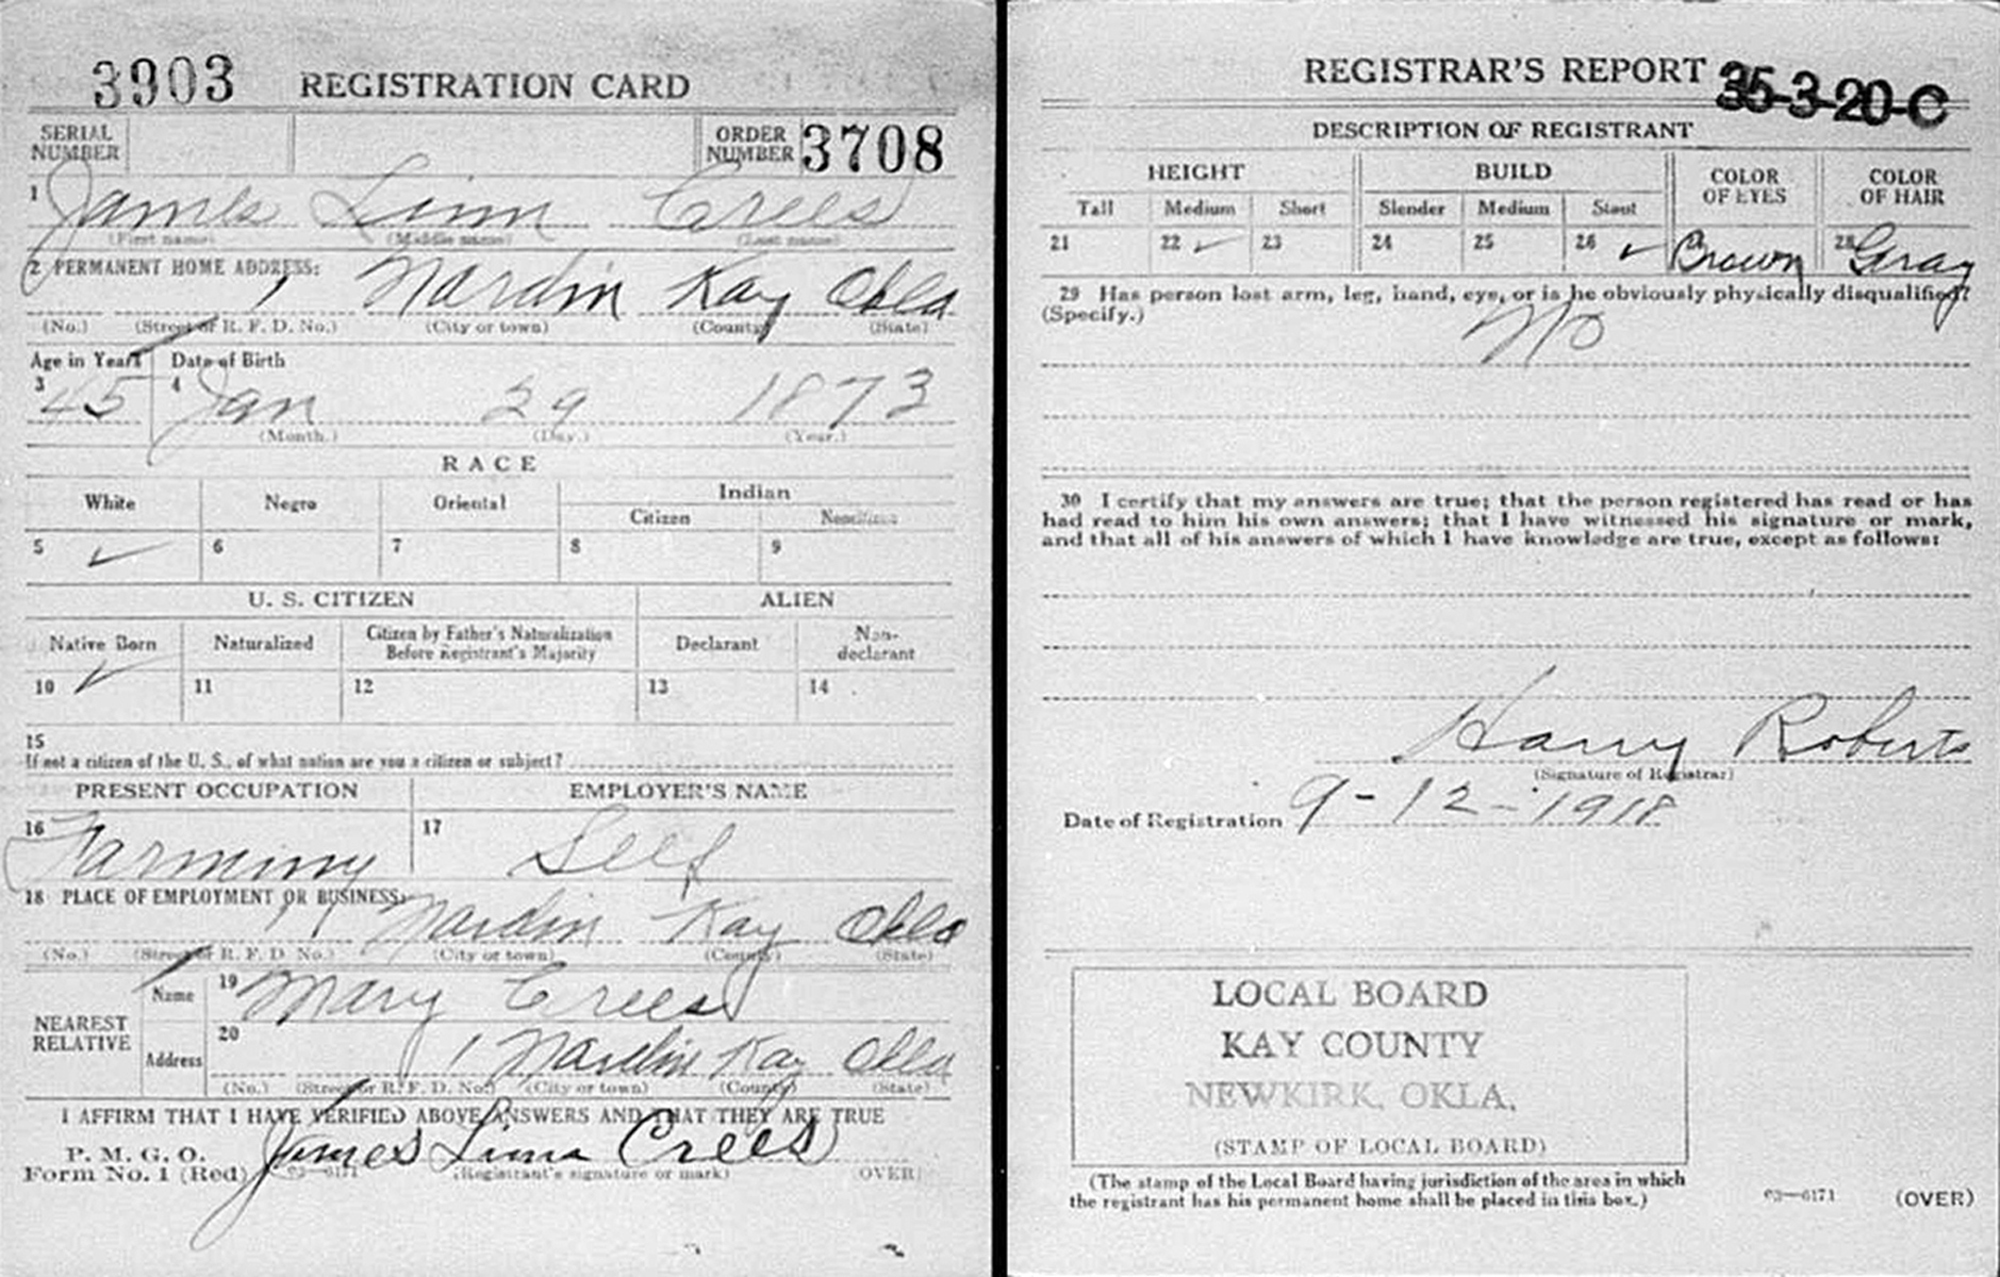 3903 REGISTRATION CARD
SERIAL NUMBER ORDER NUMBER 3708
1 James Linn Crees
(First name) (Middle name) (Last name)
2 PERMANENT HOME ADDRESS:
1 Nardin Kay Okla
(No.) (Street or R. F. D. No.) (City or town) (County) (State)
Age in Years Date of Birth
3 45 4 Jan 29 1873
(Month.) (Day.) (Year.)
RACE
White Negro Oriental Indian
Citizen Noncitizen
5 ✓ 6 7 8 9
U. S. CITIZEN ALIEN
Native Born Naturalized Citizen by Father's Naturalization Before Registrant's Majority Declarant Non-declarant
10 ✓ 11 12 13 14
15
If not a citizen of the U. S., of what nation are you a citizen or subject?
PRESENT OCCUPATION EMPLOYER'S NAME
16 Farming 17 Self
18 PLACE OF EMPLOYMENT OR BUSINESS:
1 Nardin Kay Okla
(No.) (Street or R. F. D. No.) (City or town) (County) (State)
NEAREST RELATIVE
Name 19 Mary Crees
Address 20 1 Nardin Kay Okla
(No.) (Street or R. F. D. No.) (City or town) (County) (State)
I AFFIRM THAT I HAVE VERIFIED ABOVE ANSWERS AND THAT THEY ARE TRUE
P. M. G. O.
Form No. 1 (Red) 03—6171 James Linn Crees
(Registrant's signature or mark) (OVER)
REGISTRAR'S REPORT 35-3-20-C
DESCRIPTION OF REGISTRANT
HEIGHT BUILD COLOR OF EYES COLOR OF HAIR
Tall Medium Short Slender Medium Stout
21 22 ✓ 23 24 25 26 ✓ Brown 28 Gray
29 Has person lost arm, leg, hand, eye, or is he obviously physically disqualified?
(Specify.) No
30 I certify that my answers are true; that the person registered has read or has
had read to him his own answers; that I have witnessed his signature or mark,
and that all of his answers of which I have knowledge are true, except as follows:
Harry Roberts
(Signature of Registrar)
Date of Registration 9-12-1918
LOCAL BOARD
KAY COUNTY
NEWKIRK, OKLA.
(STAMP OF LOCAL BOARD)
(The stamp of the Local Board having jurisdiction of the area in which
the registrant has his permanent home shall be placed in this box.)
03—6171 (OVER)